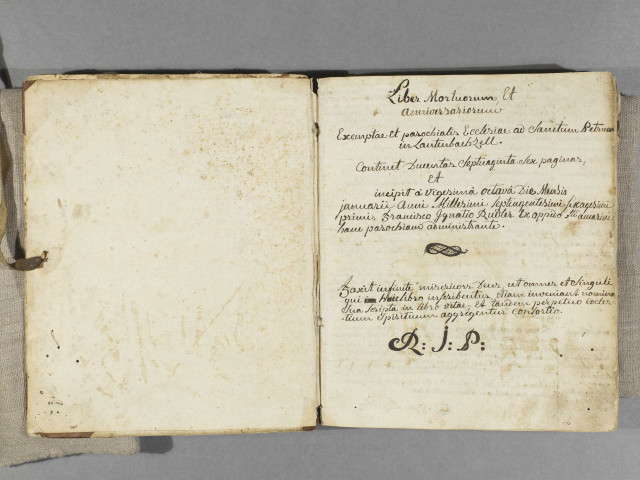 Liber Mortuorum, Et
Anniversariorum
Exemptae et parochialis Ecclesiae ad Sanctum Petrum
in Lautenbachzell.
Continet Ducentas Septuaginta Sex paginas,
Et
incipit à vigesimâ octavâ Die Mensis
januarii Anni Millesimi Septingentesimi sexagesimi
primi, Francisco Ignatio Ruoler Ex oppido Sti amarini
hanc parochiam administrante.
Faxit infinitè misericors Deus, ut omnes et Singuli
qui Huic libro inscribentur, etiam inveniant nomina
sua scripta in libro vitae, et tandem perpetuo coeles-
tium Spirituum aggregentur consortio.
R: I: P: